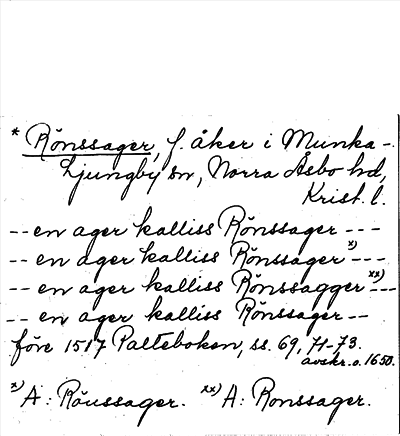 * Rönssager, f. åker i Munka-
Ljungby sn, Norra Åsbo hd,
Krist. l.
-- en ager kalliss Rönssager ---
-- en ager kalliss Rönssager x) ---
-- en ager kalliss Rönssagger xx) ---
-- en ager kalliss Rönssager --
före 1517 Palteboken, ss. 69, 71-73.
avskr. o. 1650.
x) A: Röussager. xx) A: Ronssager.